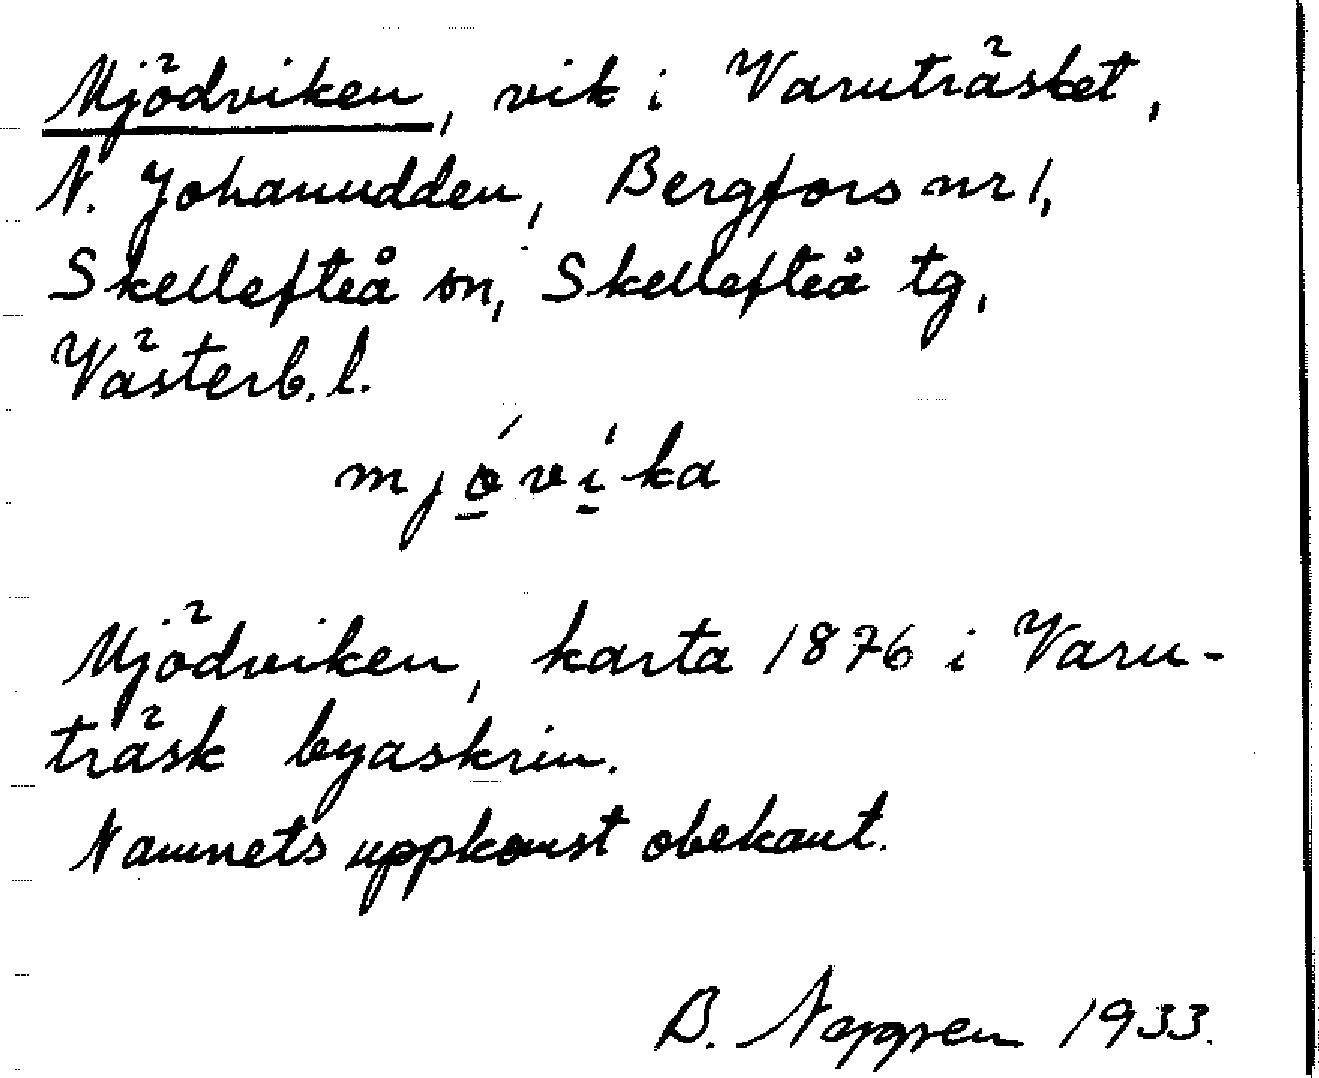 Mjödviken, vik i Varuträsket,
N. Johanudden, Bergfors nr 1,
Skellefteå sn, Skellefteå tg,
Västerb. l.
mjó̱ví̱ka
Mjödviken, karta 1876 i Varu-
träsk byaskrin.
Namnets uppkomst obekant.
B. 1933.